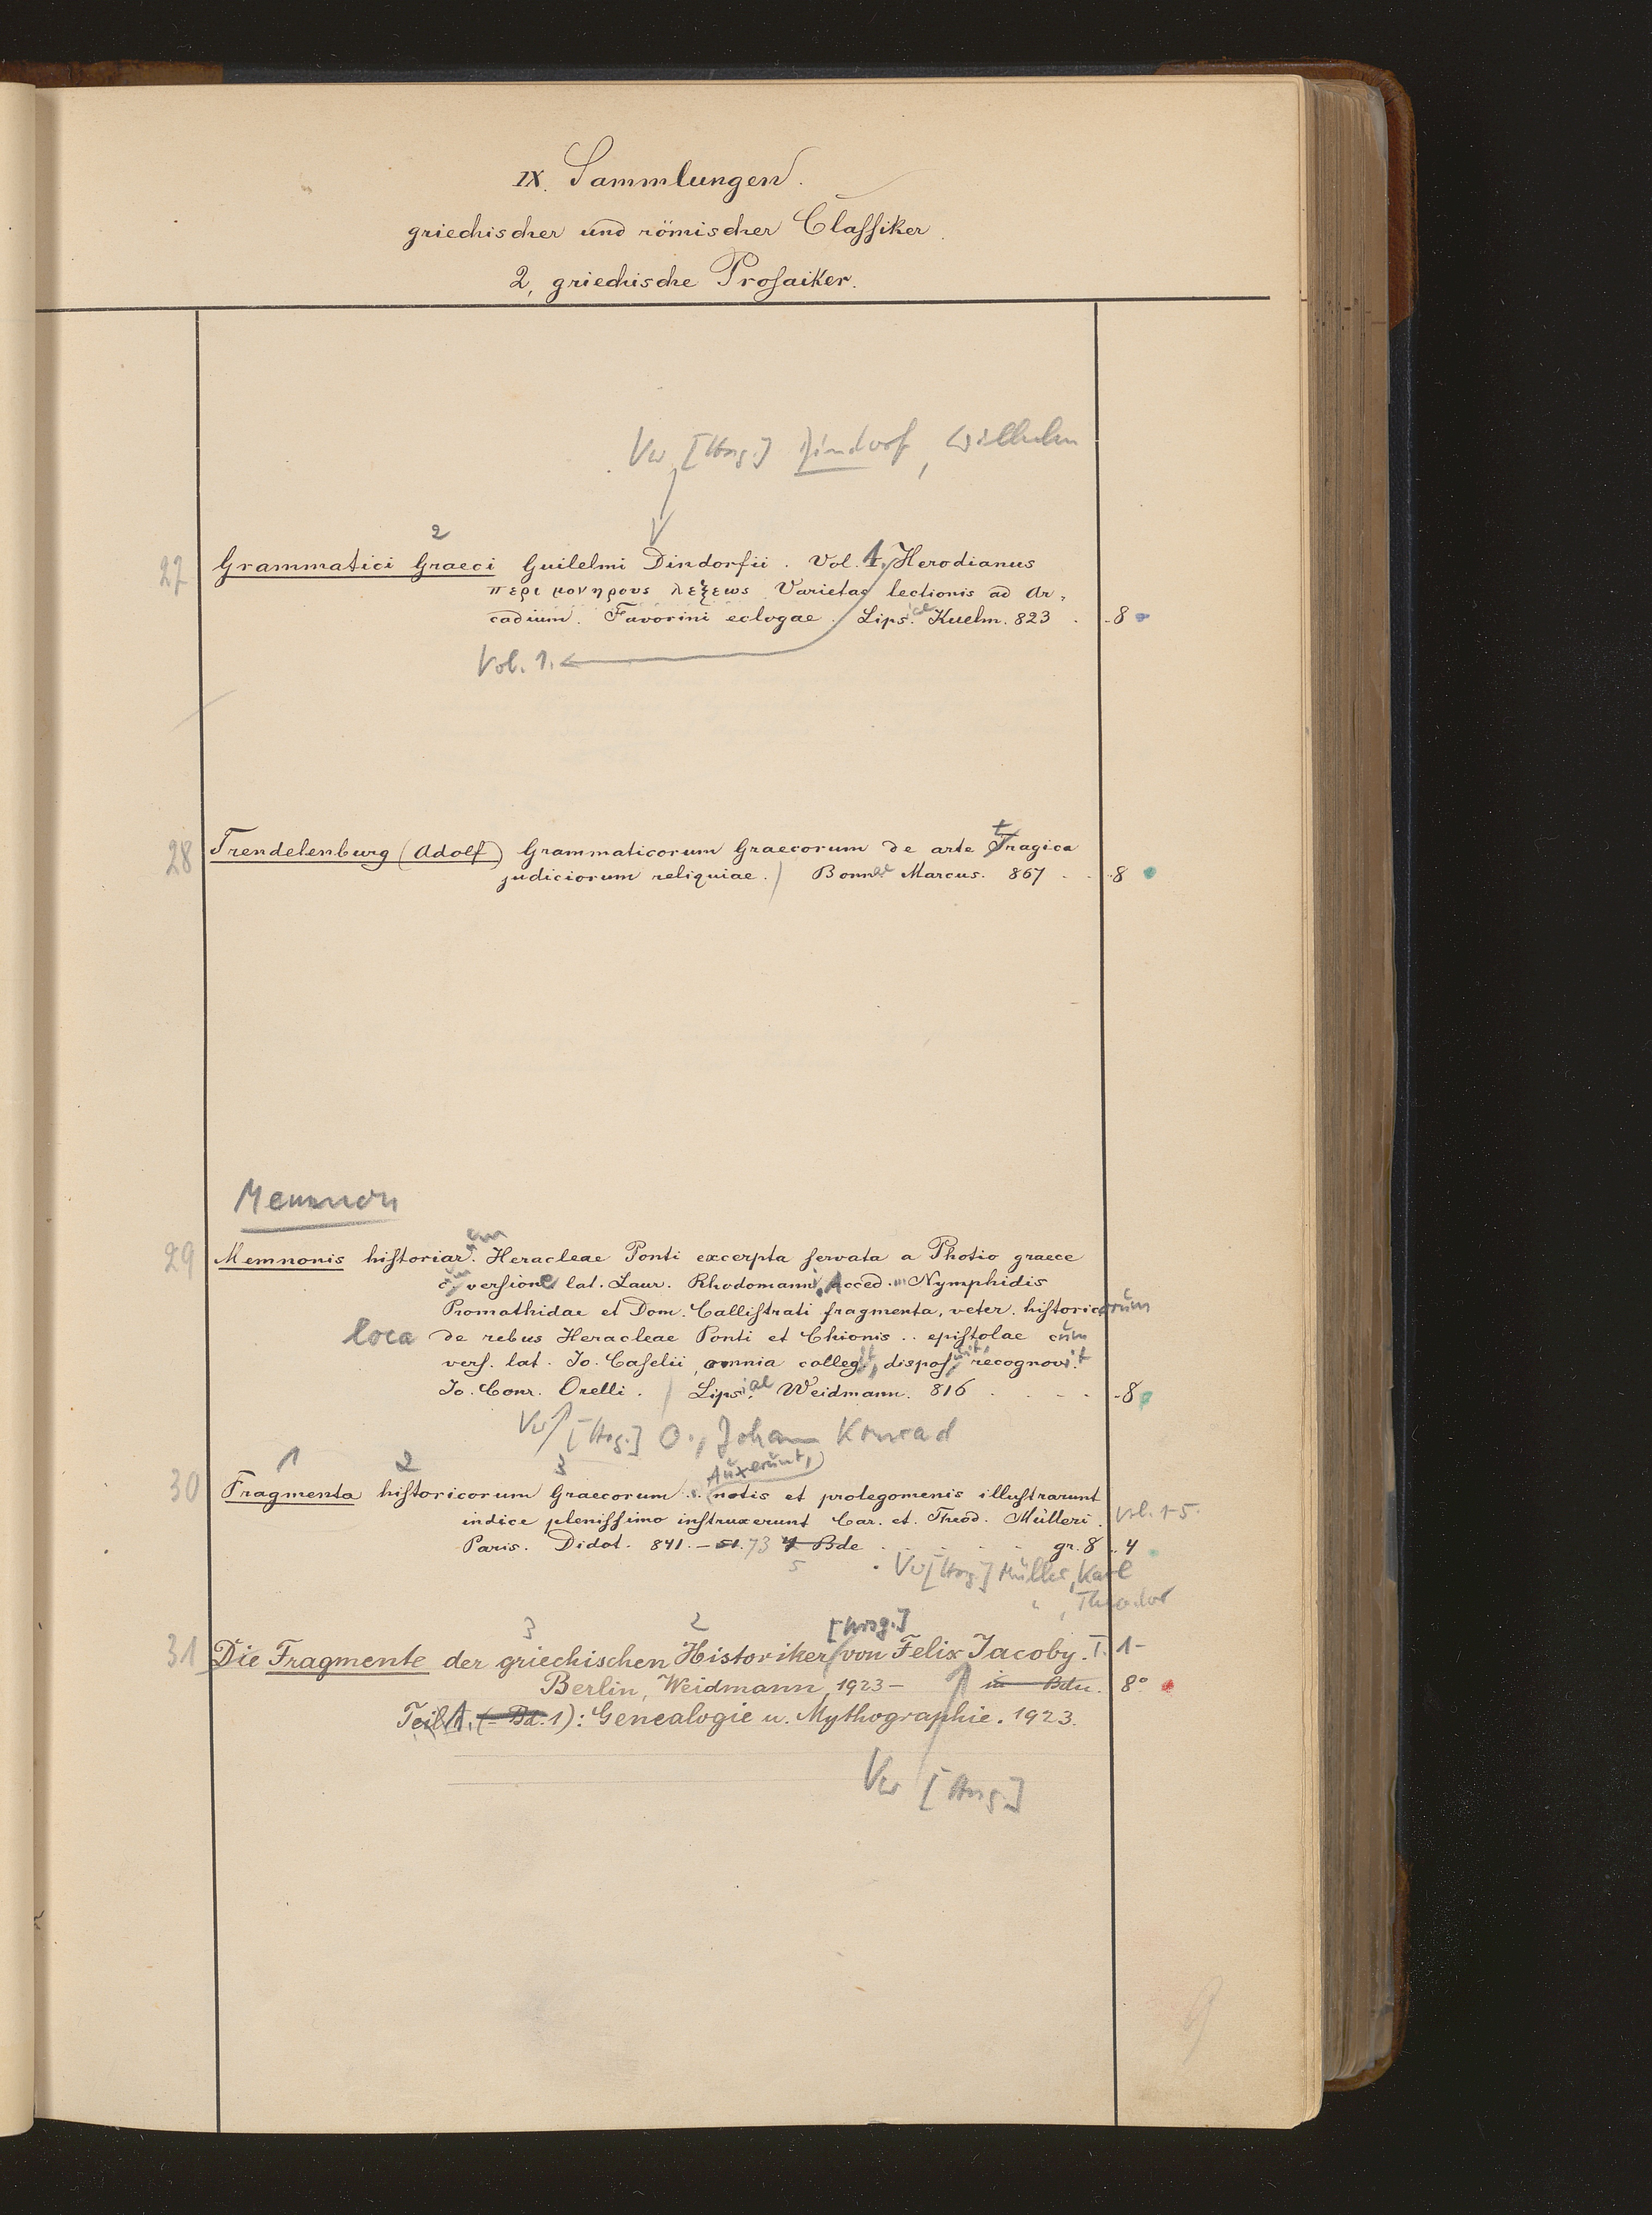 IX. Sammlungen.
griechischer und römischer Claſſiker.
2, griechische Proſaiker.
Vw [Hrsg.] Dindorf, Wilhelm
2
27 Grammatici Graeci Guilelmi Dindorfii. Vol. 1. Herodianus
περι μονηρους λεξεως Varietas lectionis ad Ar-
cadium. Favorini eclogae. Lipsiae Kuehn. 823 . 8
Vol. 1.
28 Trendelenburg (Adolf) Grammaticorum Graecorum de arte tragica
judiciorum reliquiae. Bonnae Marcus. 867 . . 8
Memnon
29 Memnonis hiſtoriarum Heracleae Ponti excerpta ſervata a Photio graece
cum verſione lat. Laur. Rhodomanni. Acced... Nymphidis
Promathidae et Dom. Calliſtrati fragmenta, veter. hiſtoricorum
loca de rebus Heracleae Ponti et Chionis .. epiſtolae cum
verſ. lat. Jo. Caſelii, omnia collegit, dispoſuit, recognovit
Jo. Conr. Orelli. Lipsiae Weidmann. 816 . . . . 8
Vw [Hrsg.] O., Johann Konrad
1 2 3 Auxerunt,
30 Fragmenta hiſtoricorum Graecorum .. notis et prolegomenis illuſtrarunt
indice pleniſſimo inſtruxerunt Car. et. Theod. Mülleri. Vol. 1-5.
Paris. Didot. 841. – 51. 73 4 Bde . . . . gr. 8 . 4
5 Vw [Hrsg.] Müller, Karl
" , Theodor
3 2 [Hrsg.]
31 Die Fragmente der griechischen Historiker von Felix Jacoby. I. 1-
Berlin, Weidmann, 1923 – in Bdn. 8°
Teil 1. (= Bd. 1): Genealogie u. Mythographie. 1923.
Vw [Hrsg.]